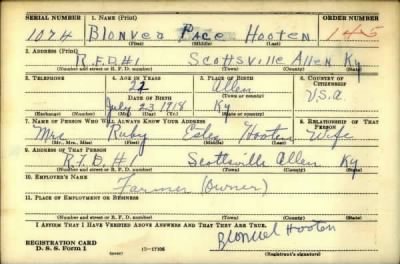 SERIAL NUMBER 1. NAME (Print) ORDER NUMBER
1074 Blonver Pace Hooten 145
(First) (Middle) (Last)
2. ADDRESS (Print)
R.F.D #1 Scottsville Allen Ky
(Number and street or R. F. D. number) (Town) (County) (State)
3. TELEPHONE 4. AGE IN YEARS 5. PLACE OF BIRTH 6. COUNTRY OF CITIZENSHIP
22 Allen
(Town or county)
DATE OF BIRTH U.S.A
July 23 1918 Ky
(Exchange) (Number) (Mo.) (Day) (Yr.) (State or country)
7. NAME OF PERSON WHO WILL ALWAYS KNOW YOUR ADDRESS 8. RELATIONSHIP OF THAT PERSON
Mrs Ruby Estes Hooten Wife
(Mr., Mrs., Miss) (First) (Middle) (Last)
9. ADDRESS OF THAT PERSON
R.F.D. #1 Scottsville Allen Ky
(Number and street or R. F. D. number) (Town) (County) (State)
10. EMPLOYER'S NAME
Farmer (Owner)
11. PLACE OF EMPLOYMENT OR BUSINESS
(Number and street or R. F. D. number) (Town) (County) (State)
I AFFIRM THAT I HAVE VERIFIED ABOVE ANSWERS AND THAT THEY ARE TRUE.
REGISTRATION CARD Hooten
D. S. S. Form 1 (Registrant's signature)